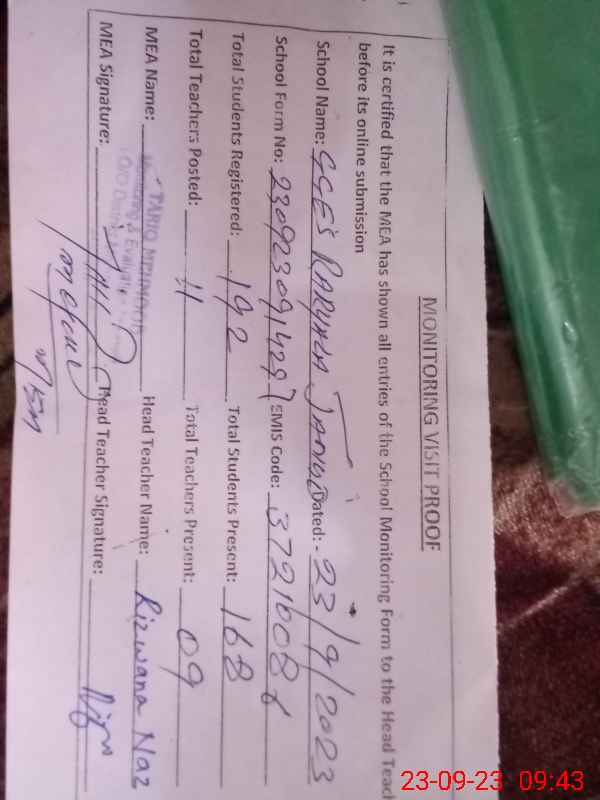 MONITORING VISIT PROOF
It is certified that the MEA has shown all entries of the School Monitoring Form to the Head Teach
before its online submission
School Name: GGES Dated: - 23/9/2023
School Form No: EMIS Code:
Total Students Registered: 192 Total Students Present: 168
Total Teachers Posted: 11 Total Teachers Present: 09
MEA Name: TARIQ MEHMOOD Head Teacher Name: Rizwana Naz
Monitoring & Evaluation
MEA Signature: Head Teacher Signature:
23-09-23 09:43